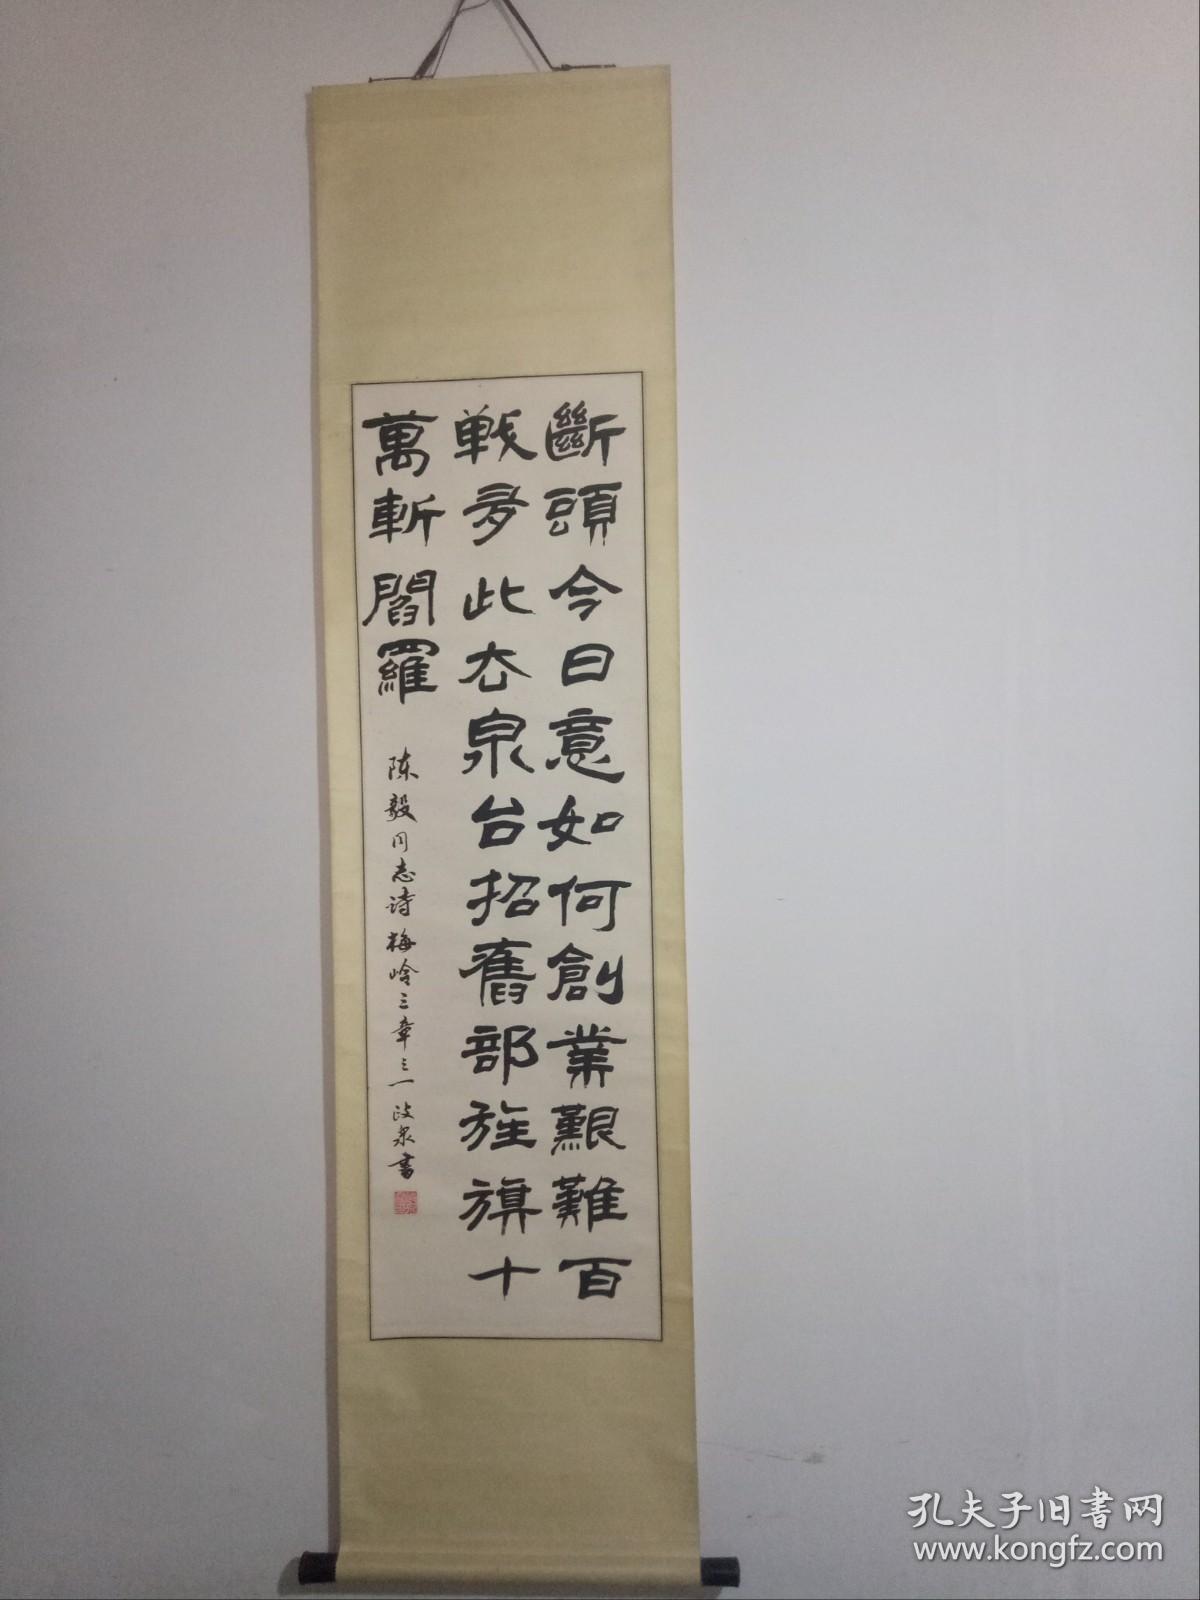 斷頭今日意如何創業艱難百
戦多此去泉台招舊部旌旗十
萬斬閻羅
陈毅同志诗梅岭三章之一政泉书
孔夫子旧书网
www.kongfz.com